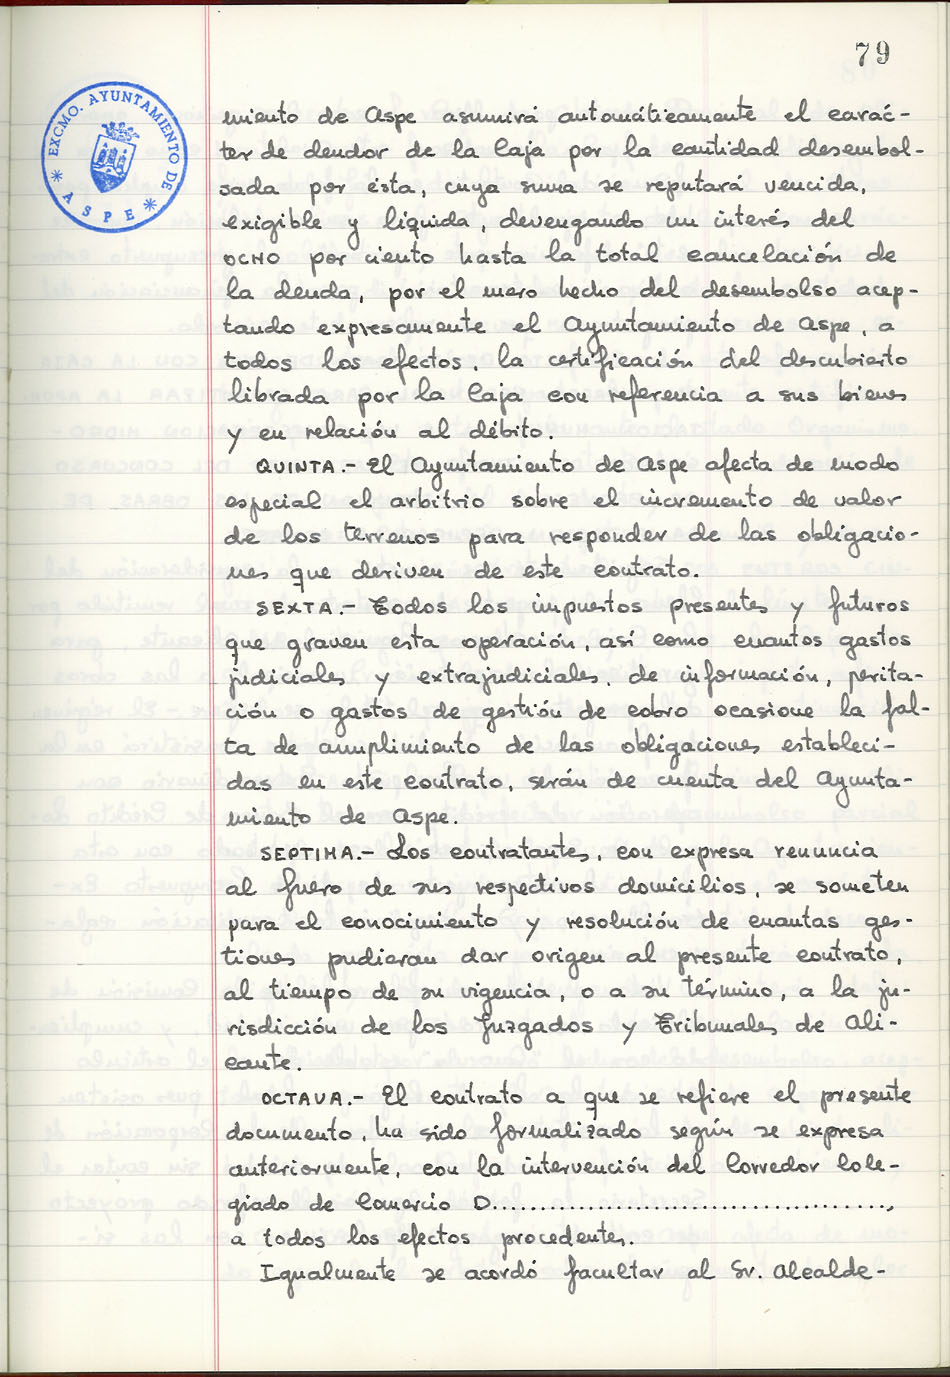 79
EXCMO. AYUNTAMIENTO DE
* ASPE *
miento de Aspe asumirá automáticamente el carác-
ter de deudor de la Caja por la cantidad desembol-
sada por ésta, cuya suma se reputará vencida,
exigible y líquida, devengando un interés del
OCHO por ciento hasta la total cancelación de
la deuda, por el mero hecho del desembolso acep-
tando expresamente el Ayuntamiento de Aspe, a
todos los efectos, la certificación del descubierto
librada por la Caja con referencia a sus bienes
y en relación al débito.
QUINTA.- El Ayuntamiento de Aspe afecta de modo
especial el arbitrio sobre el incremento de valor
de los terrenos para responder de las obligacio-
nes que deriven de este contrato.
SEXTA.- Todos los impuestos presentes y futuros
que graven esta operación, así como cuantos gastos
judiciales y extrajudiciales, de información, perita-
ción o gastos de gestión de cobro ocasione la fal-
ta de cumplimiento de las obligaciones estableci-
das en este contrato, serán de cuenta del Ayunta-
miento de Aspe.
SEPTIMA.- Los contratantes, con expresa renuncia
al fuero de sus respectivos domicilios, se someten
para el conocimiento y resolución de cuantas ges-
tiones pudieran dar origen al presente contrato,
al tiempo de su vigencia, o a su término, a la ju-
risdicción de los Juzgados y Tribunales de Ali-
cante.
OCTAVA.- El contrato a que se refiere el presente
documento, ha sido formalizado según se expresa
anteriormente, con la intervención del Corredor Cole-
giado de Comercio D.......................................,
a todos los efectos procedentes.
Igualmente se acordó facultar al Sr. Alcalde-